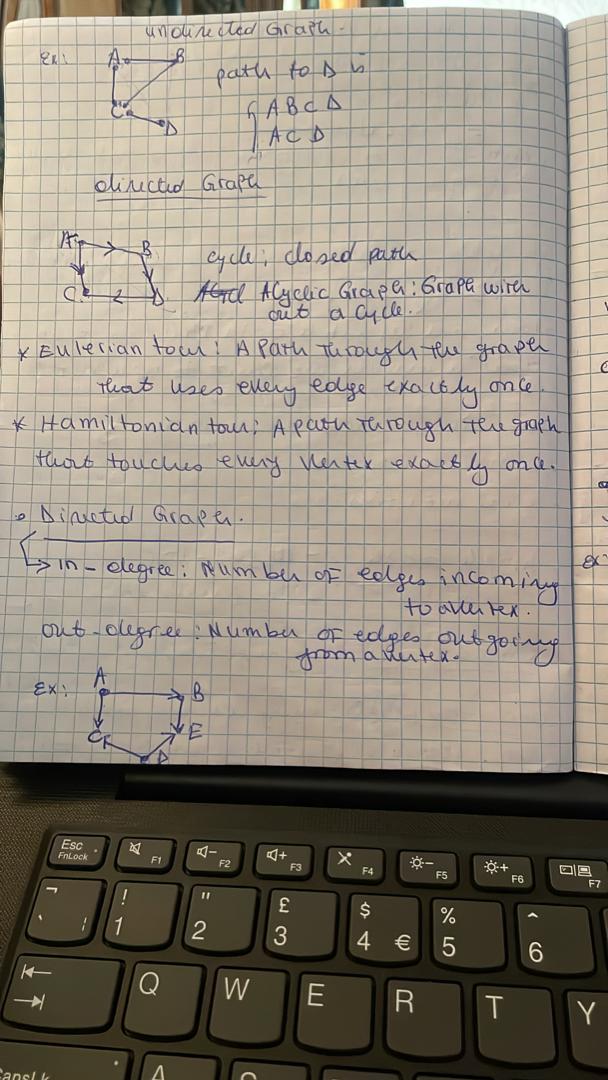 undirected Graph.
Ex: A B path to D is
C { A B C D
D A C D
directed Graph
A B cycle: closed path
C D Acyclic Graph: Graph with
out a cycle.
* Eulerian tour: A Path through the graph
that uses every edge exactly once.
* Hamiltonian tour: A path through the graph
that touches every vertex exactly once.
Directed Graph.
Ex:
↳ in-degree: Number of edges incoming
to a vertex.
out-degree: Number of edges outgoing
from a vertex.
Ex: A B
C D E
Esc FnLock F1 F2 F3 F4 F5 F6 F7
¬ ` ¦ ! 1 " 2 £ 3 $ 4 € % 5 ^ 6
Q W E R T Y
CapsLk A